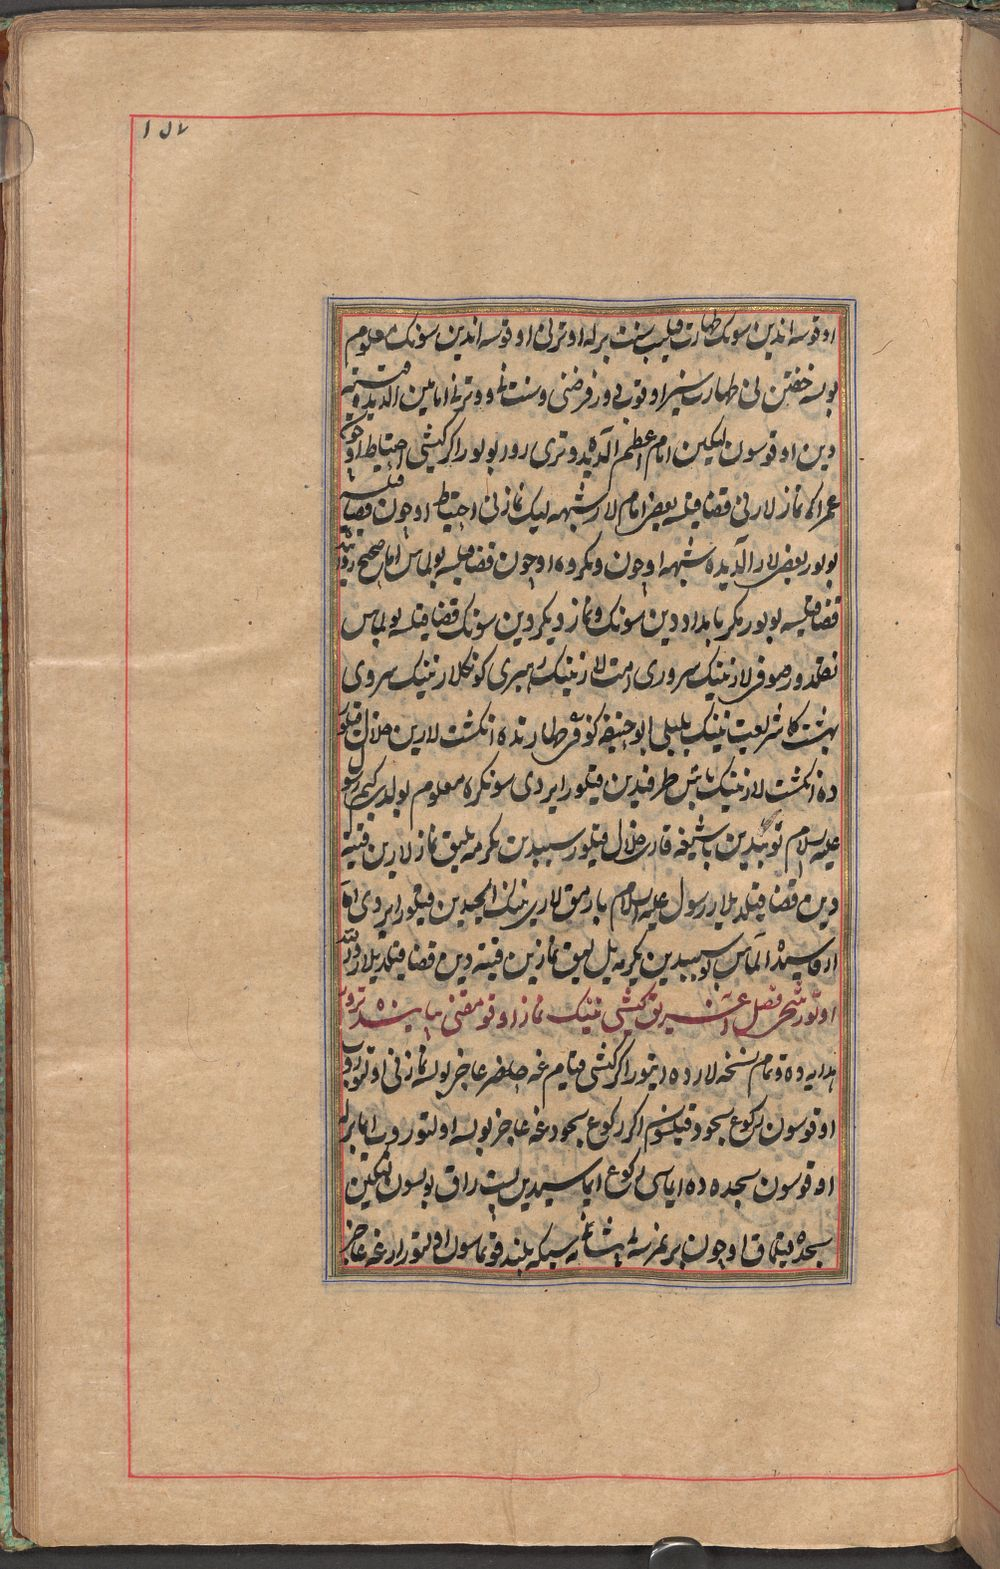 ١٥٧
اوقوسه اندین سونک طهارت قیلیب سنت برله اوترنی اوقوسه اندین سونک معلوم
بولسه خفتن نی طهارت سیز اوقوبدور فرضنی و سنت نی و وترنی امامین الدیده
دین اوقوسون لیکین امام اعظم الدیده وتری روا بولور اکر کیشی احتیاط اوچون
عمراکه نمازلارنی قضا قیلسه بعضی امام لار شبهه لیک نمازنی احتیاط اوچون قضا قیلسه
بولور بعضی لار الدیده شبهه اوچون و مکروه اوچون قضا قیلسه بولماس اما صحیح
قضا قیلسه بولور مکر بامداددین سونک و نماز دیکردین سونک قضا قیلسه بولماس
نقلدور صوفی لارنینک سروری امت لارنینک رهبری کونکلارنینک سروی
بهشت کا شریعت نینک بلبلی ابو حنیفه کوفی طهارتده انکشت لارین خلال قیلور
ده انکشت لارنینک باش طرفیدین قیلور ایردی سونکره معلوم بولدی کیم رسول
علیه السلام توبیدین باشیغه قاری خلال قیلور سببدین یکرمه ییللیق نمازلارین
دین قضا قیلدیلار رسول علیه السلام بارمق لاری نینک ایچیدین قیلور ایردی اما
اوقاسیده الماس بو سببدین یکرمه ییل لیق نمازین قیته دین قضا قیلدیلار
اوتورنجی فصل آغریق کیشی نینک نماز اوقوماقنی بیانیده تورور
هدایه ده و تمام نسخه لارده ایتور اکر کیشی قیام غه حاضر عاجز بولسه نمازنی اولتوروب
اوقوسون رکوع سجود قیلسون اکر رکوع سجودغه عاجز بولسه اولتوروب ایما برله
اوقوسون سجده ده ایماسی رکوع ایماسیدین پست راق بولسون لیکین
سجده قیلماق اوچون بر نمرسه پیشانه سیکه بلند قویماسون اولتورارغه عاجز